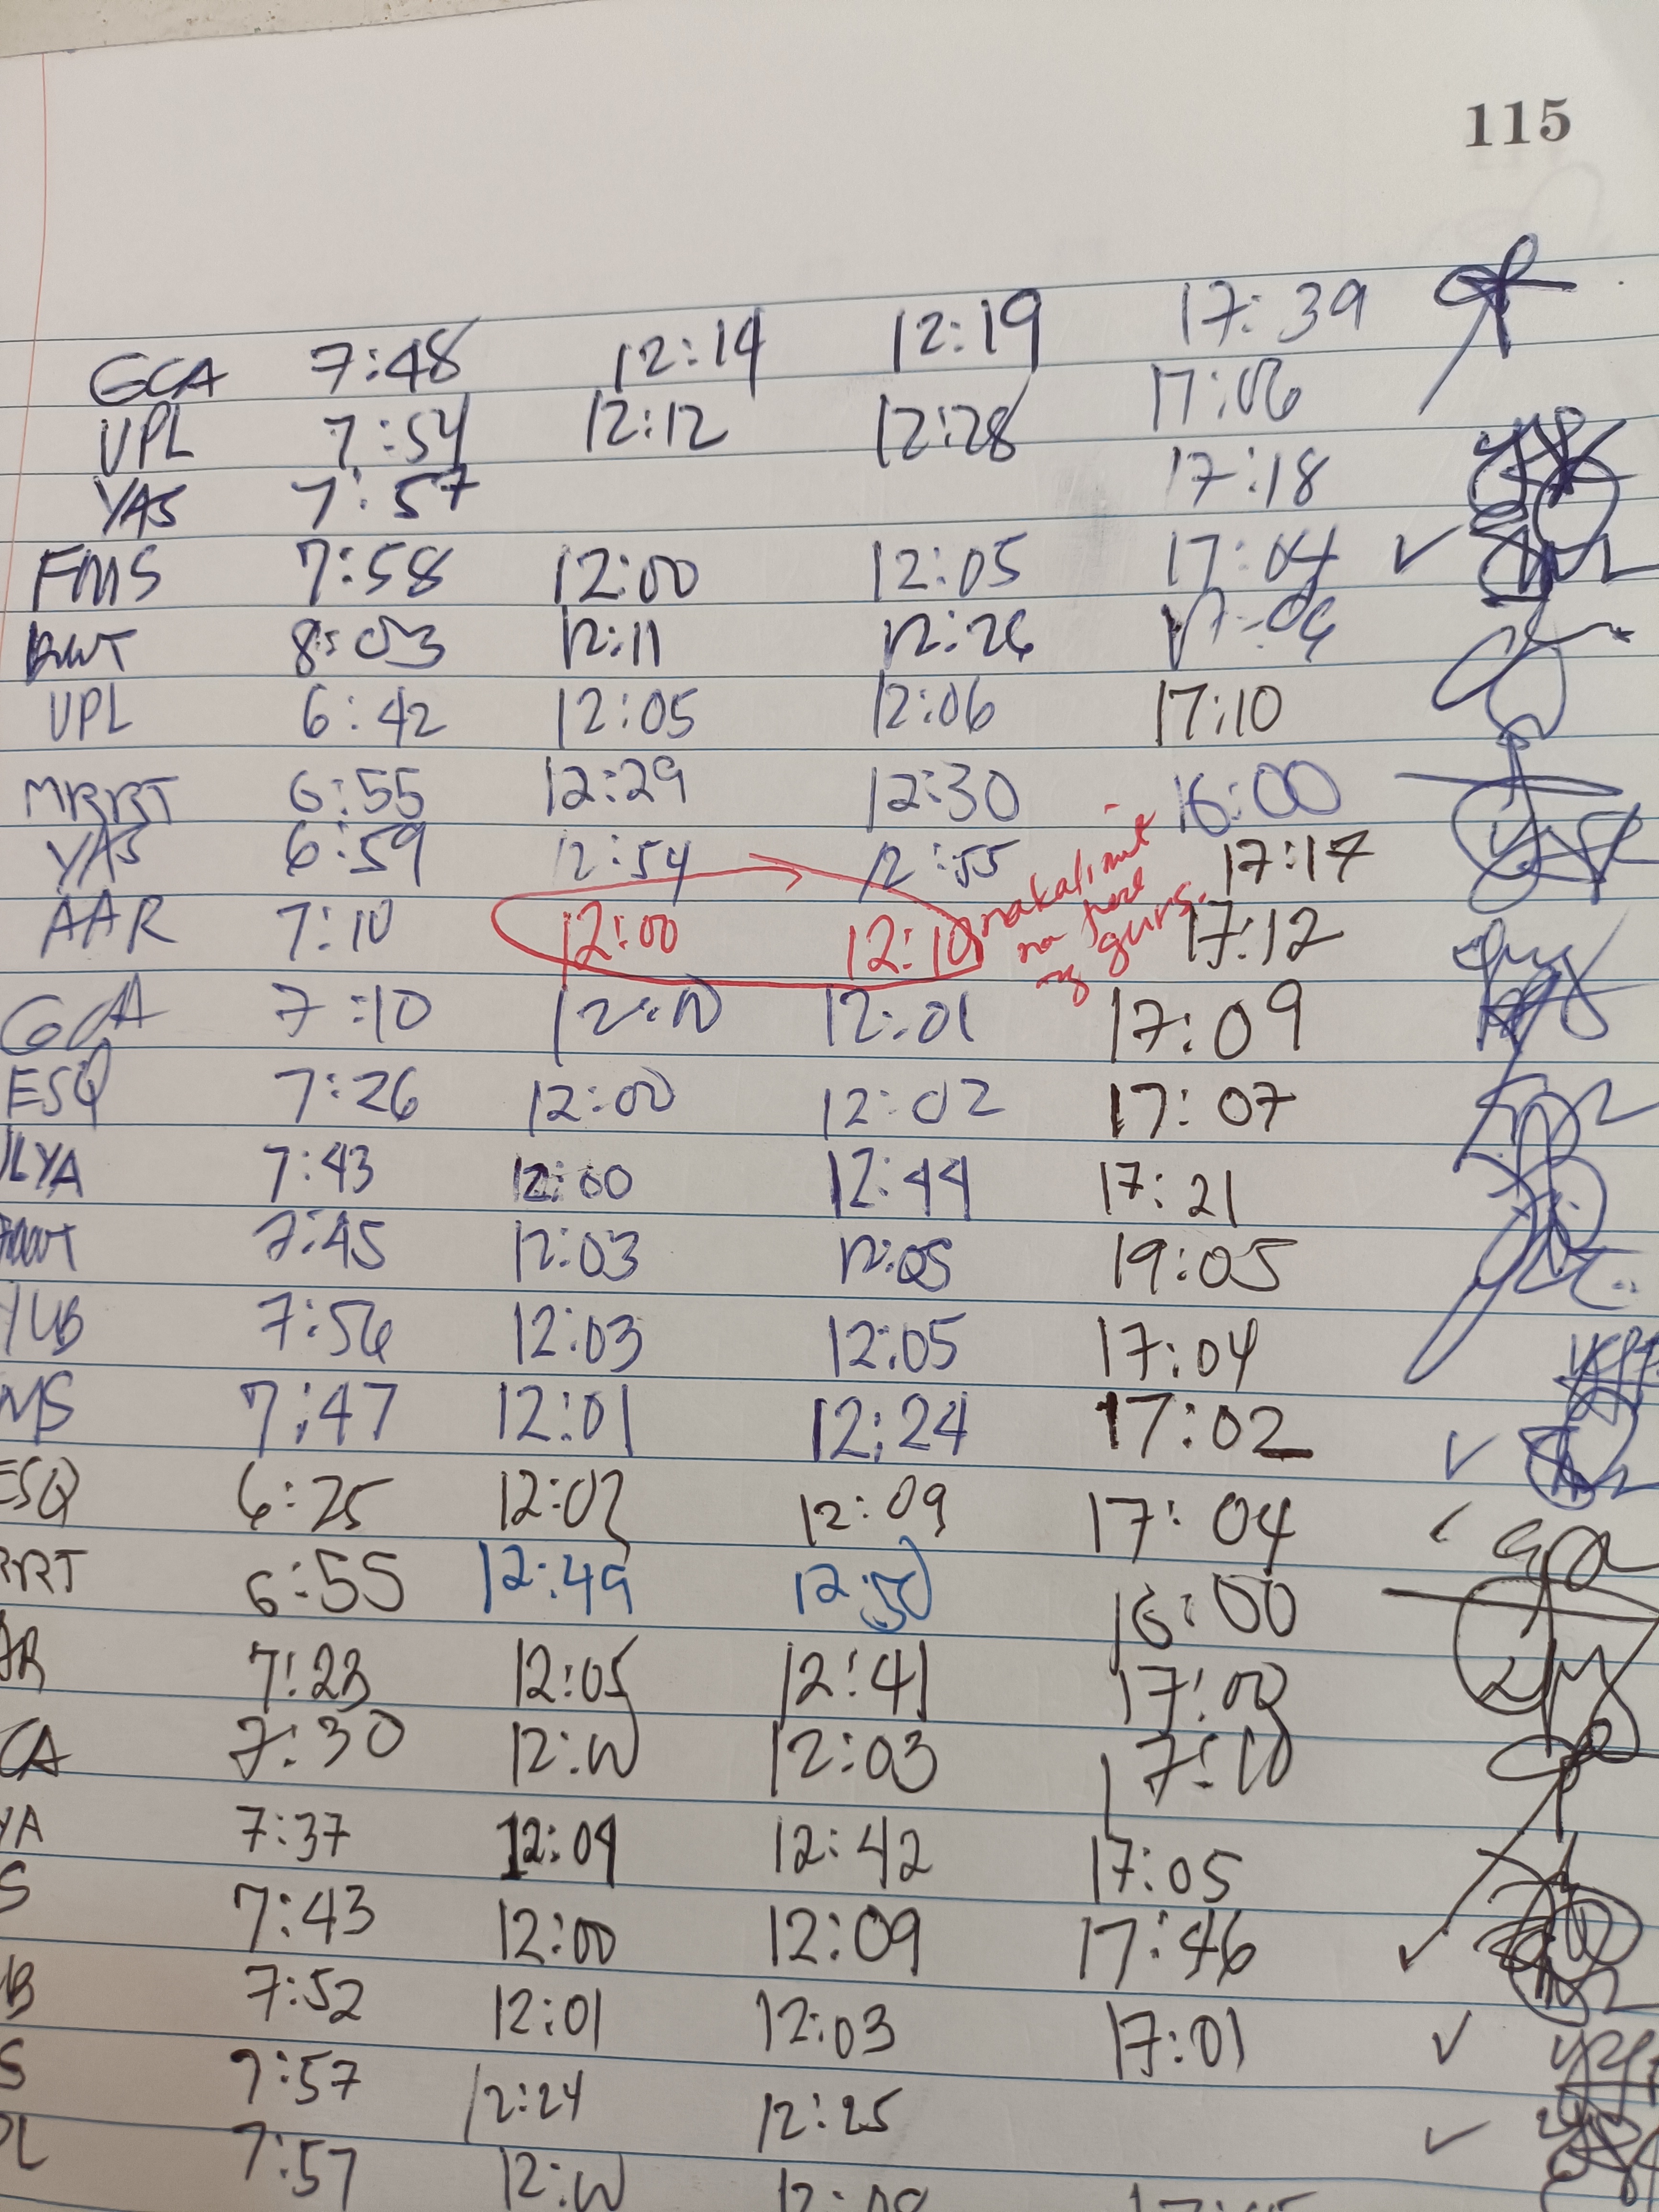 115
GCA 7:48 12:14 12:19 17:39
UPL 7:54 12:12 12:28 17:06
YAS 7:57 17:18
FMS 7:58 12:00 12:05 17:04 ✓
RWT 8:03 12:11 12:26
UPL 6:42 12:05 12:06 17:10
MRRT 6:55 12:29 12:30 16:00
YAS 6:59 12:54 12:55 17:17
AAR 7:10 12:00 12:10 17:12
makalimut
na
ng
GCA 7:10 12:00 12:01 17:09
ESQ 7:26 12:00 12:02 17:07
LYA 7:43 12:00 12:44 17:21
7:45 12:03 12:05 19:05
YUB 7:56 12:03 12:05 17:04
MS 7:47 12:01 12:24 17:02 ✓
ESQ 6:25 12:02 12:09 17:04
RRT 6:55 12:49 12:50 16:00
AR 7:23 12:05 12:41
CA 7:30 12:00 12:03 17:10
YA 7:37 12:04 12:42 17:05
S 7:43 12:00 12:09 17:46 ✓
B 7:52 12:01 12:03 17:01 ✓
S 7:57 12:24 12:25 ✓
PL 7:57 12:00